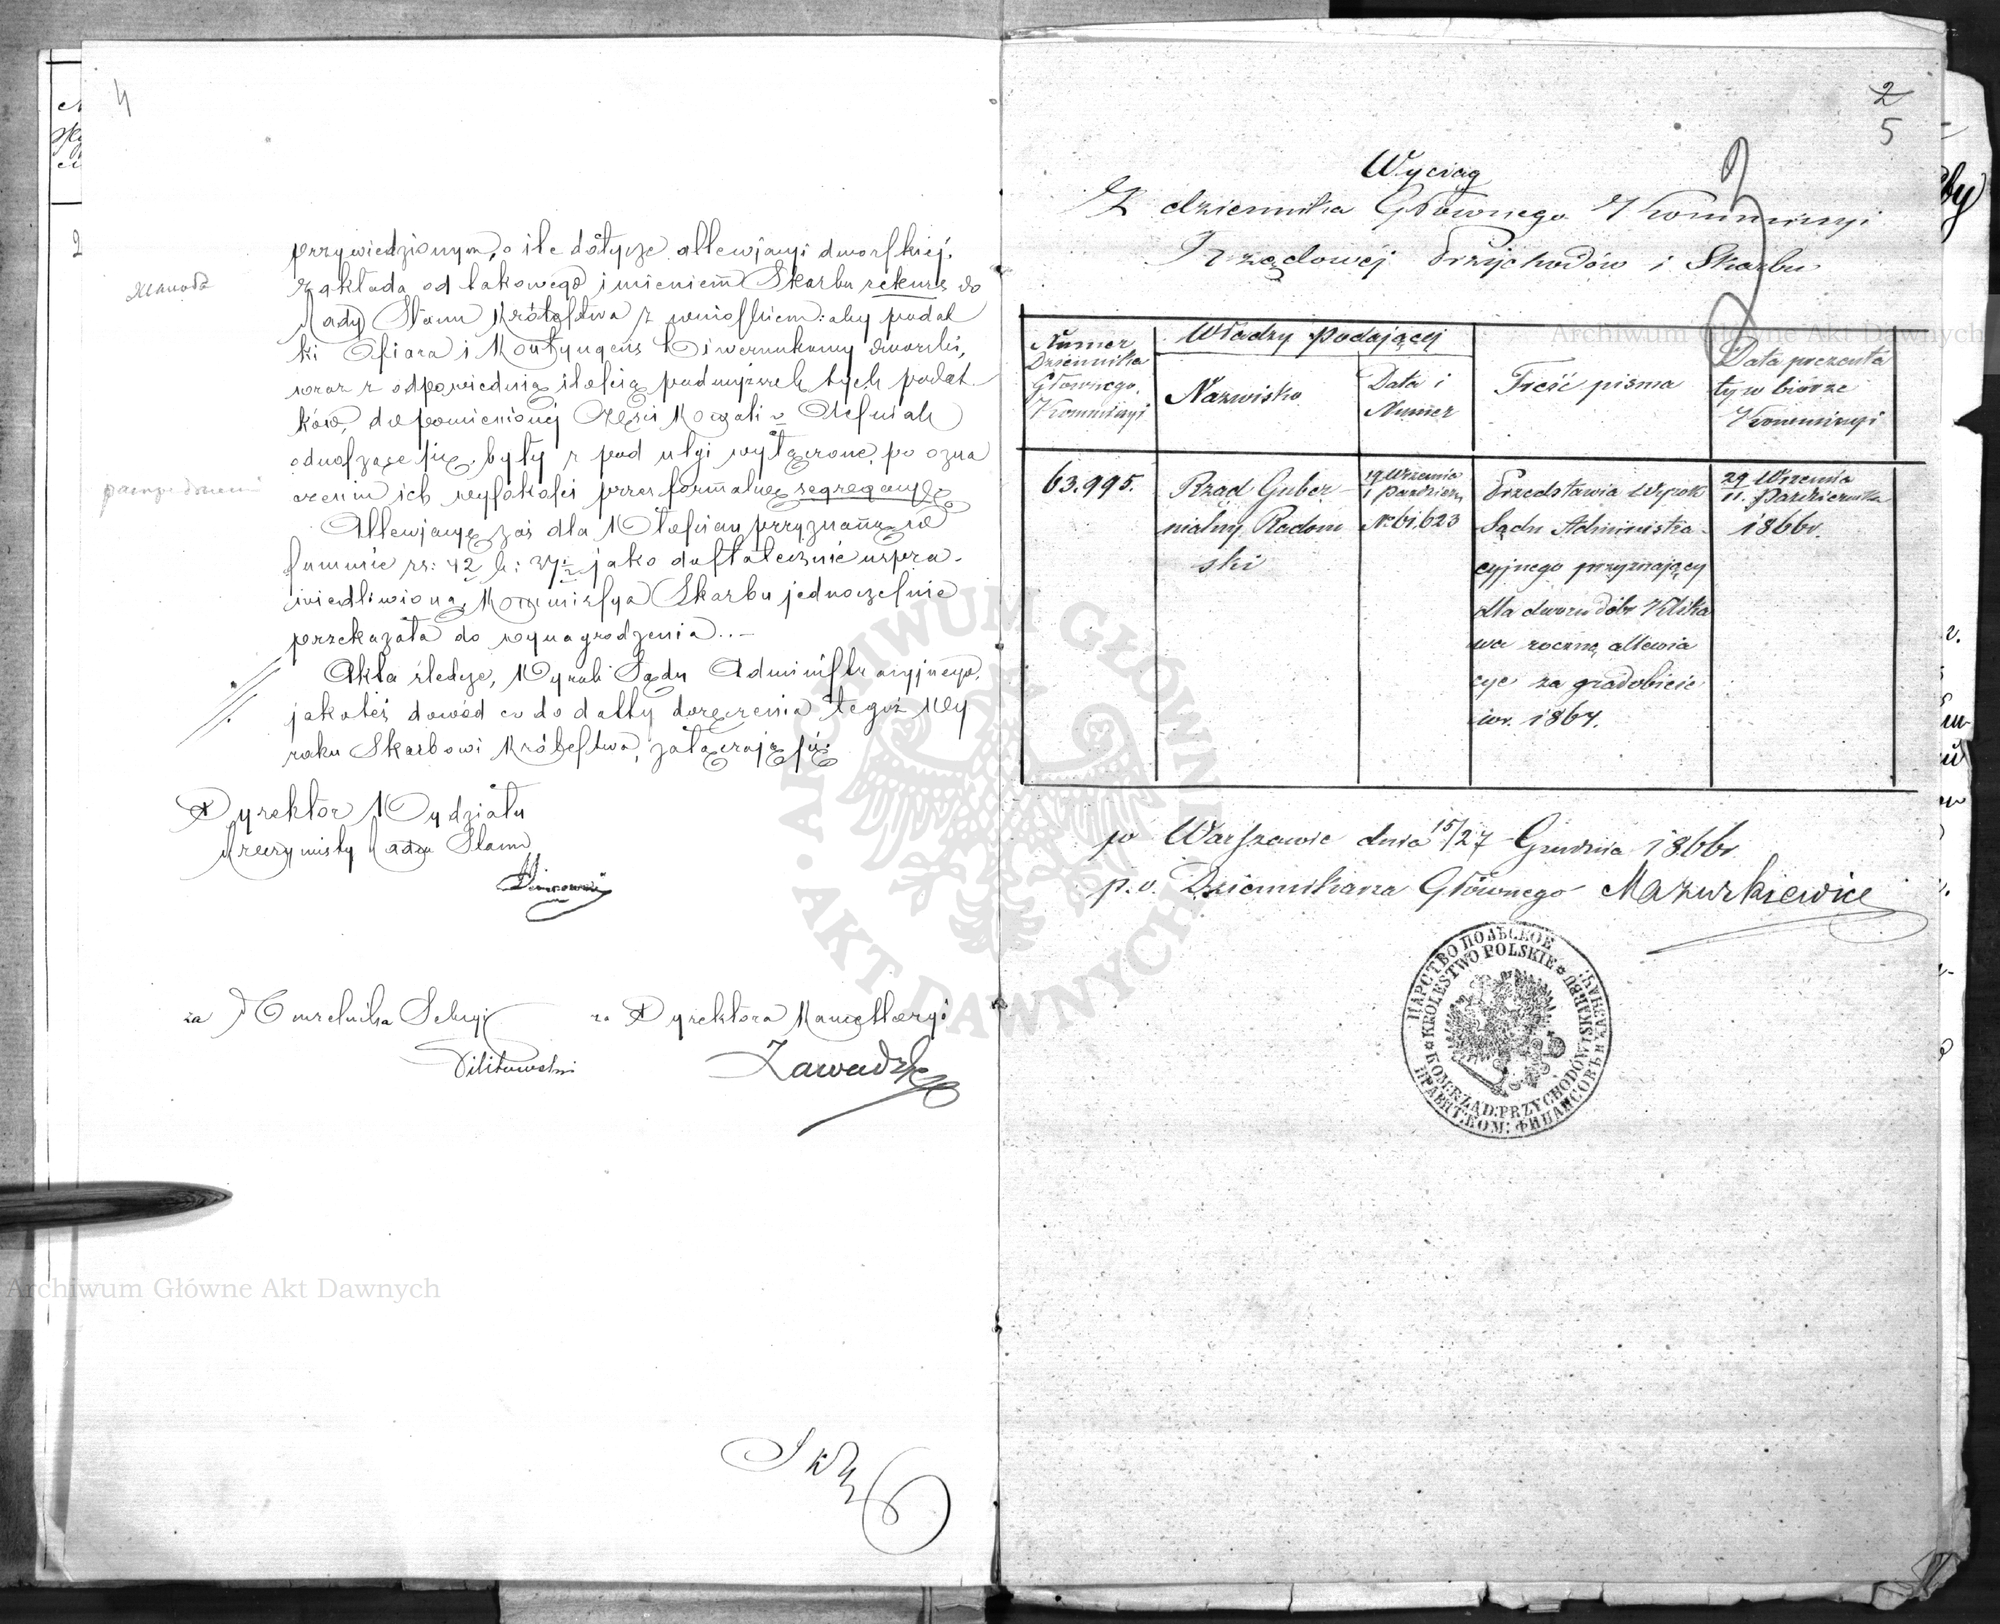 4
przywiedzionym, o ile dotycze allewjacyi dworskiej,
zakłada od takowego imieniem Skarbu rekurs do
Rady Stanu Królestwa z wnioskiem: aby podat
ki Ofiara i Kontyngens Liwerunkowy dworski,
wraz z odpowiednią ilością podwyższek tych podat
ków, do pomienionej Części
odnoszące się, były z pod ulgi wyłączone, po ozna
czeniu ich wysokości przez formalną segregacyę
Allewjacyę zaś dla Włościan przyznaną w
summie rs: 42 k: 37½ jako dostatecznie uspra-
wiedliwioną, Kommissya Skarbu jednocześnie
przekazała do wynagrodzenia.. —
Akta śledcze, Wyrok Sądu Administracyjnego,
jakoteż dowód co do datty doręczenia tegoż Wy
roku Skarbowi Królestwa, załączają się.
Dyrektor Wydziału
Rzeczywisty Radca Stanu
za Naczelnika Sekcyi
za Dyrektora Kancellaryi
Zawadzki
2
5
3
Wyciąg
Z dziennika Głównego Kommissyi
Rządowéj Przychodów i Skarbu
Numer Dziennika Głównego Kommissyi
Władzy Podającej
Nazwisko
Data i Numer
Treść pisma
Data prezenta ty w biórze Kommissyi
63.995.
Rząd Guber
nialny Radom
ski
19 Wrzesnia
1 Paździer.
No 61,623
Przedstawia Wyrok
Sądu Administra
cyjnego przyznający
dla dworu dóbr Klika
wa roczną allewia
cye za gradobicie
w r. 1864.
29 Wrzesnia
11. Października
1866 r.
w Warszawie dnia 15/27 Grudnia 1866 r.
p. o. Dziennikarza Głównego Mazurkiewicz
ЦАРСТВО ПОЛЬСКОЕ
ПРАВИТ. КОМ: ФИНАНСОВЪ И КАЗНАЧ:
KROLESTWO POLSKIE
KOM: RZĄD: PRZYCHODÓW I SKARBU
Archiwum Główne Akt Dawnych
Archiwum Główne Akt Dawnych
ARCHIWUM GŁÓWNE AKT DAWNYCH